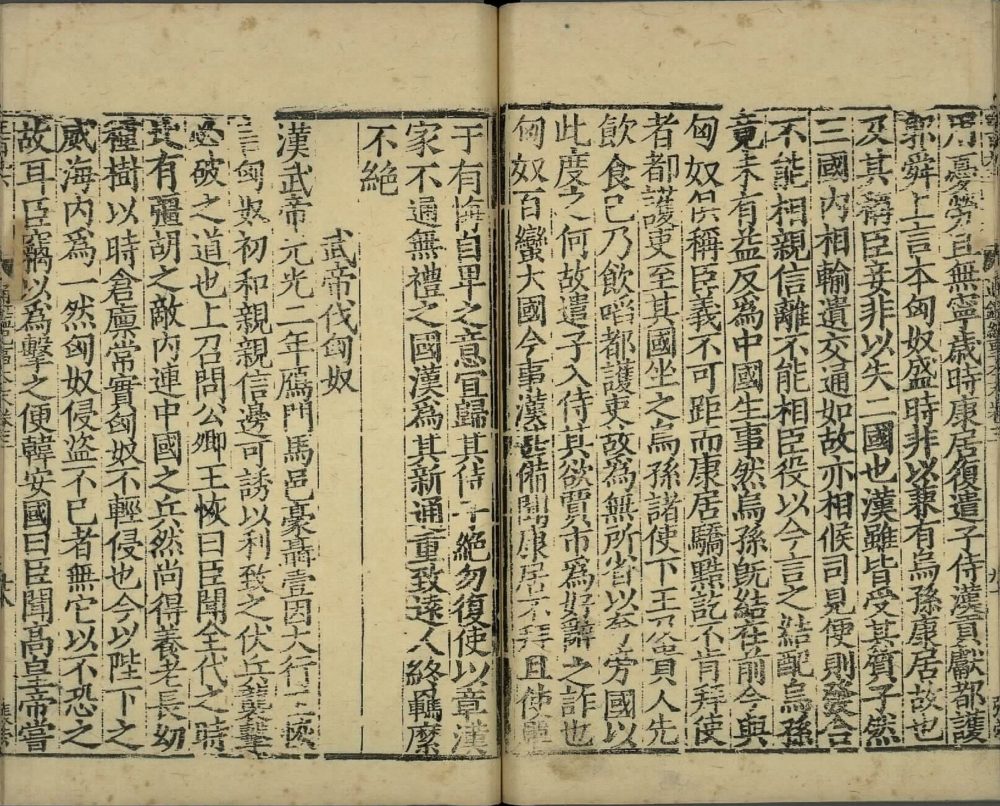 用憂勞且無寧歲時康居復遣子侍漢貢獻都護
郭舜上言本匈奴盛時非以兼有烏孫康居故也
及其稱臣妾非以失二國也漢雖皆受其質子然
三國內相輸遺交通如故亦相候司見便則發合
不能相親信離不能相臣役以今言之結配烏孫
竟未有益反為中國生事然烏孫旣結在前今與
匈奴俱稱臣義不可距而康居驕黠訖不肯拜使
者都護吏至其國坐之烏孫諸使下王及貴人先
飲食已乃飲啗都護吏故為無所省以夸旁國以
此度之何故遣子入侍其欲賈市為好辭之詐也
匈奴百蠻大國今事漢甚備聞康居不拜且使單
于有悔自卑之意宜歸其侍子絕勿復使以章漢
家不通無禮之國漢為其新通重致遠人終羈縻
不絕
武帝伐匈奴
漢武帝元光二年鴈門馬邑豪聶壹因大行王恢
言匈奴初和親親信邊可誘以利致之伏兵襲擊
必破之道也上召問公卿王恢曰臣聞全代之時
北有彊胡之敵內連中國之兵然尚得養老長幼
種樹以時倉廩常實匈奴不輕侵也今以陛下之
威海內爲一然匈奴侵盜不已者無它以不恐之
故耳臣竊以為擊之便韓安國曰臣聞高皇帝嘗